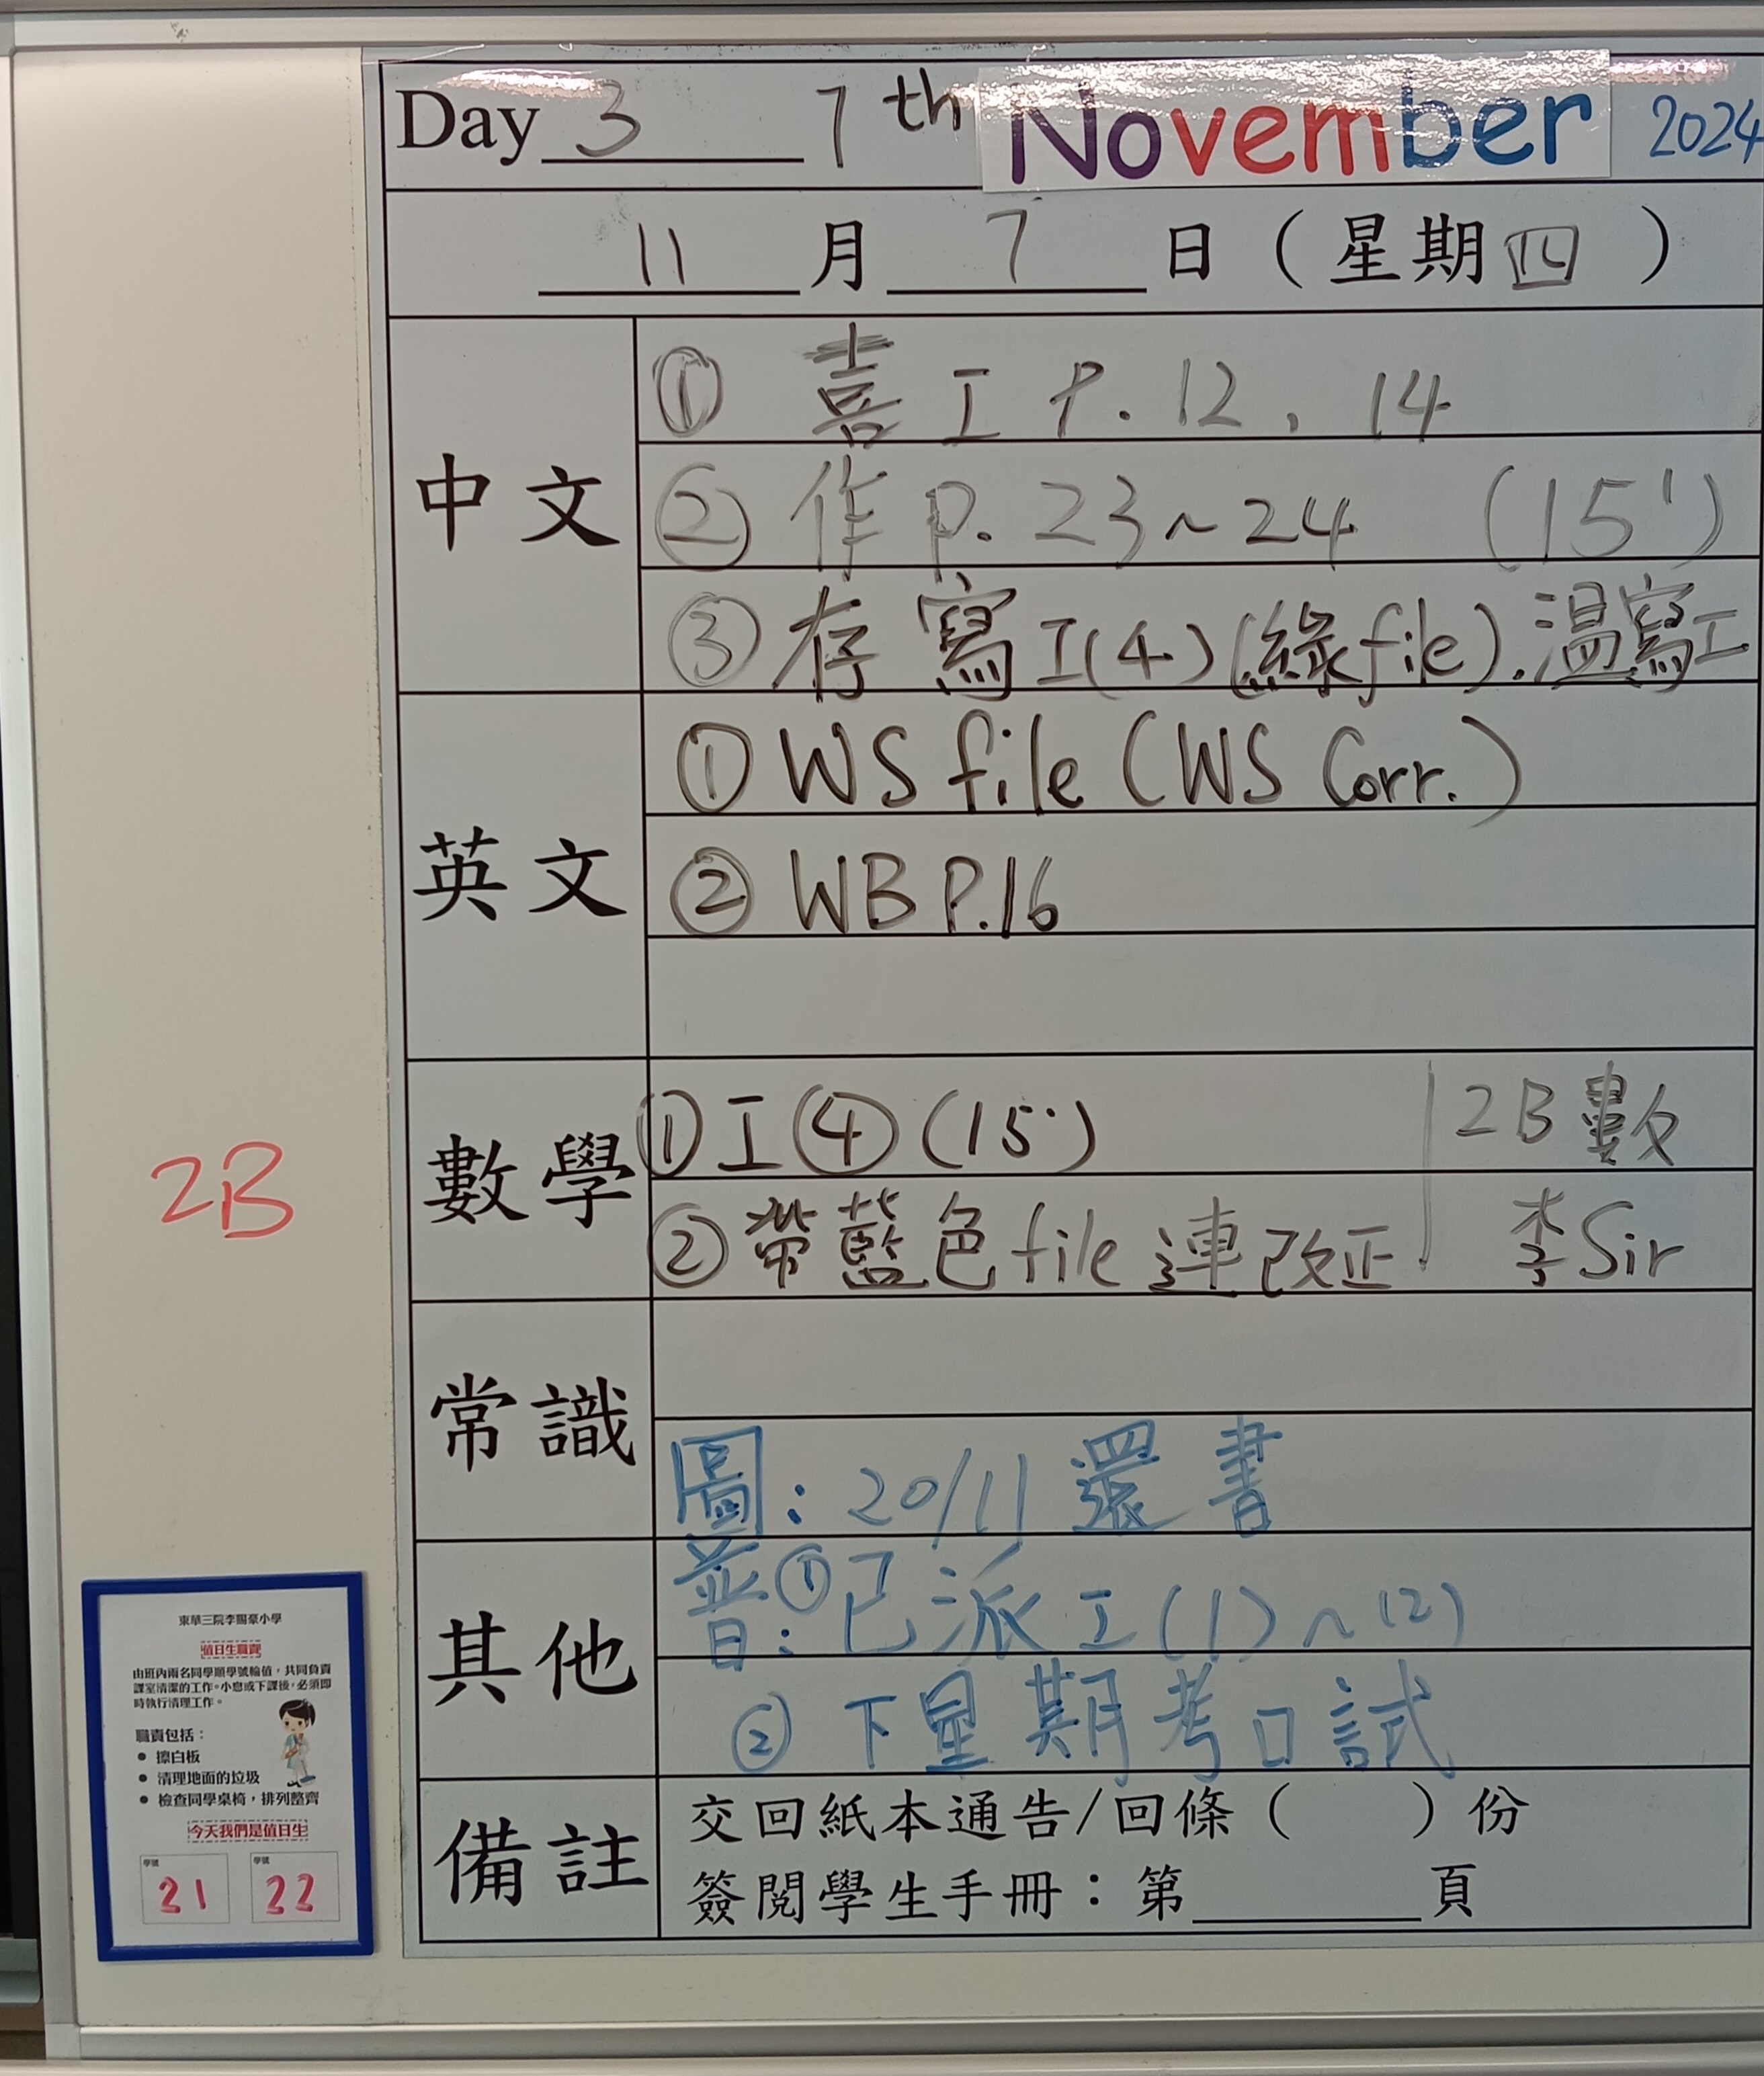 Day 3 7th November 2024
11 月 7 日 ( 星期四 )
中文
① 喜工 P. 12, 14
② 作 p. 23~24 (15')
③ 存寫工(4)(綠file). 温寫工
英文
① WS file (WS Corr.)
② WB P.16
數學
① 工④ (15')
2B 數
② 帶藍色file 連改正
李Sir
2B
常識
圖: 20/11 還書
其他
普: ① 已派工(1)~(2)
② 下星期考口試
備註
交回紙本通告/回條 ( ) 份
簽閱學生手冊:第 頁
東華三院李賜豪小學
值日生職責
由班內兩名同學順學號輪值,共同負責
課室清潔的工作。小息或下課後,必須即
時執行清理工作。
職責包括:
● 擦白板
● 清理地面的垃圾
● 檢查同學桌椅,排列整齊
今天我們是值日生
學號 學號
21 22